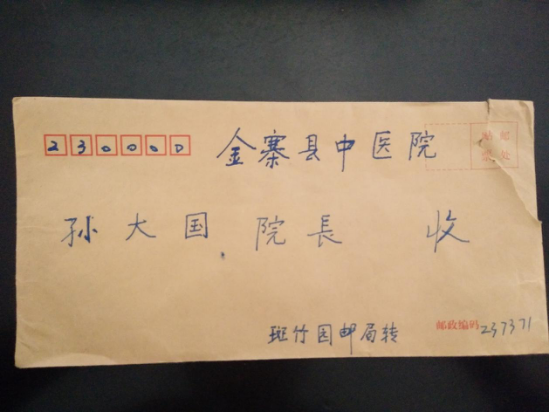 230000 金寨县中医院
贴邮
票处
孙大国院長 收
斑竹园邮局转
邮政编码 237371